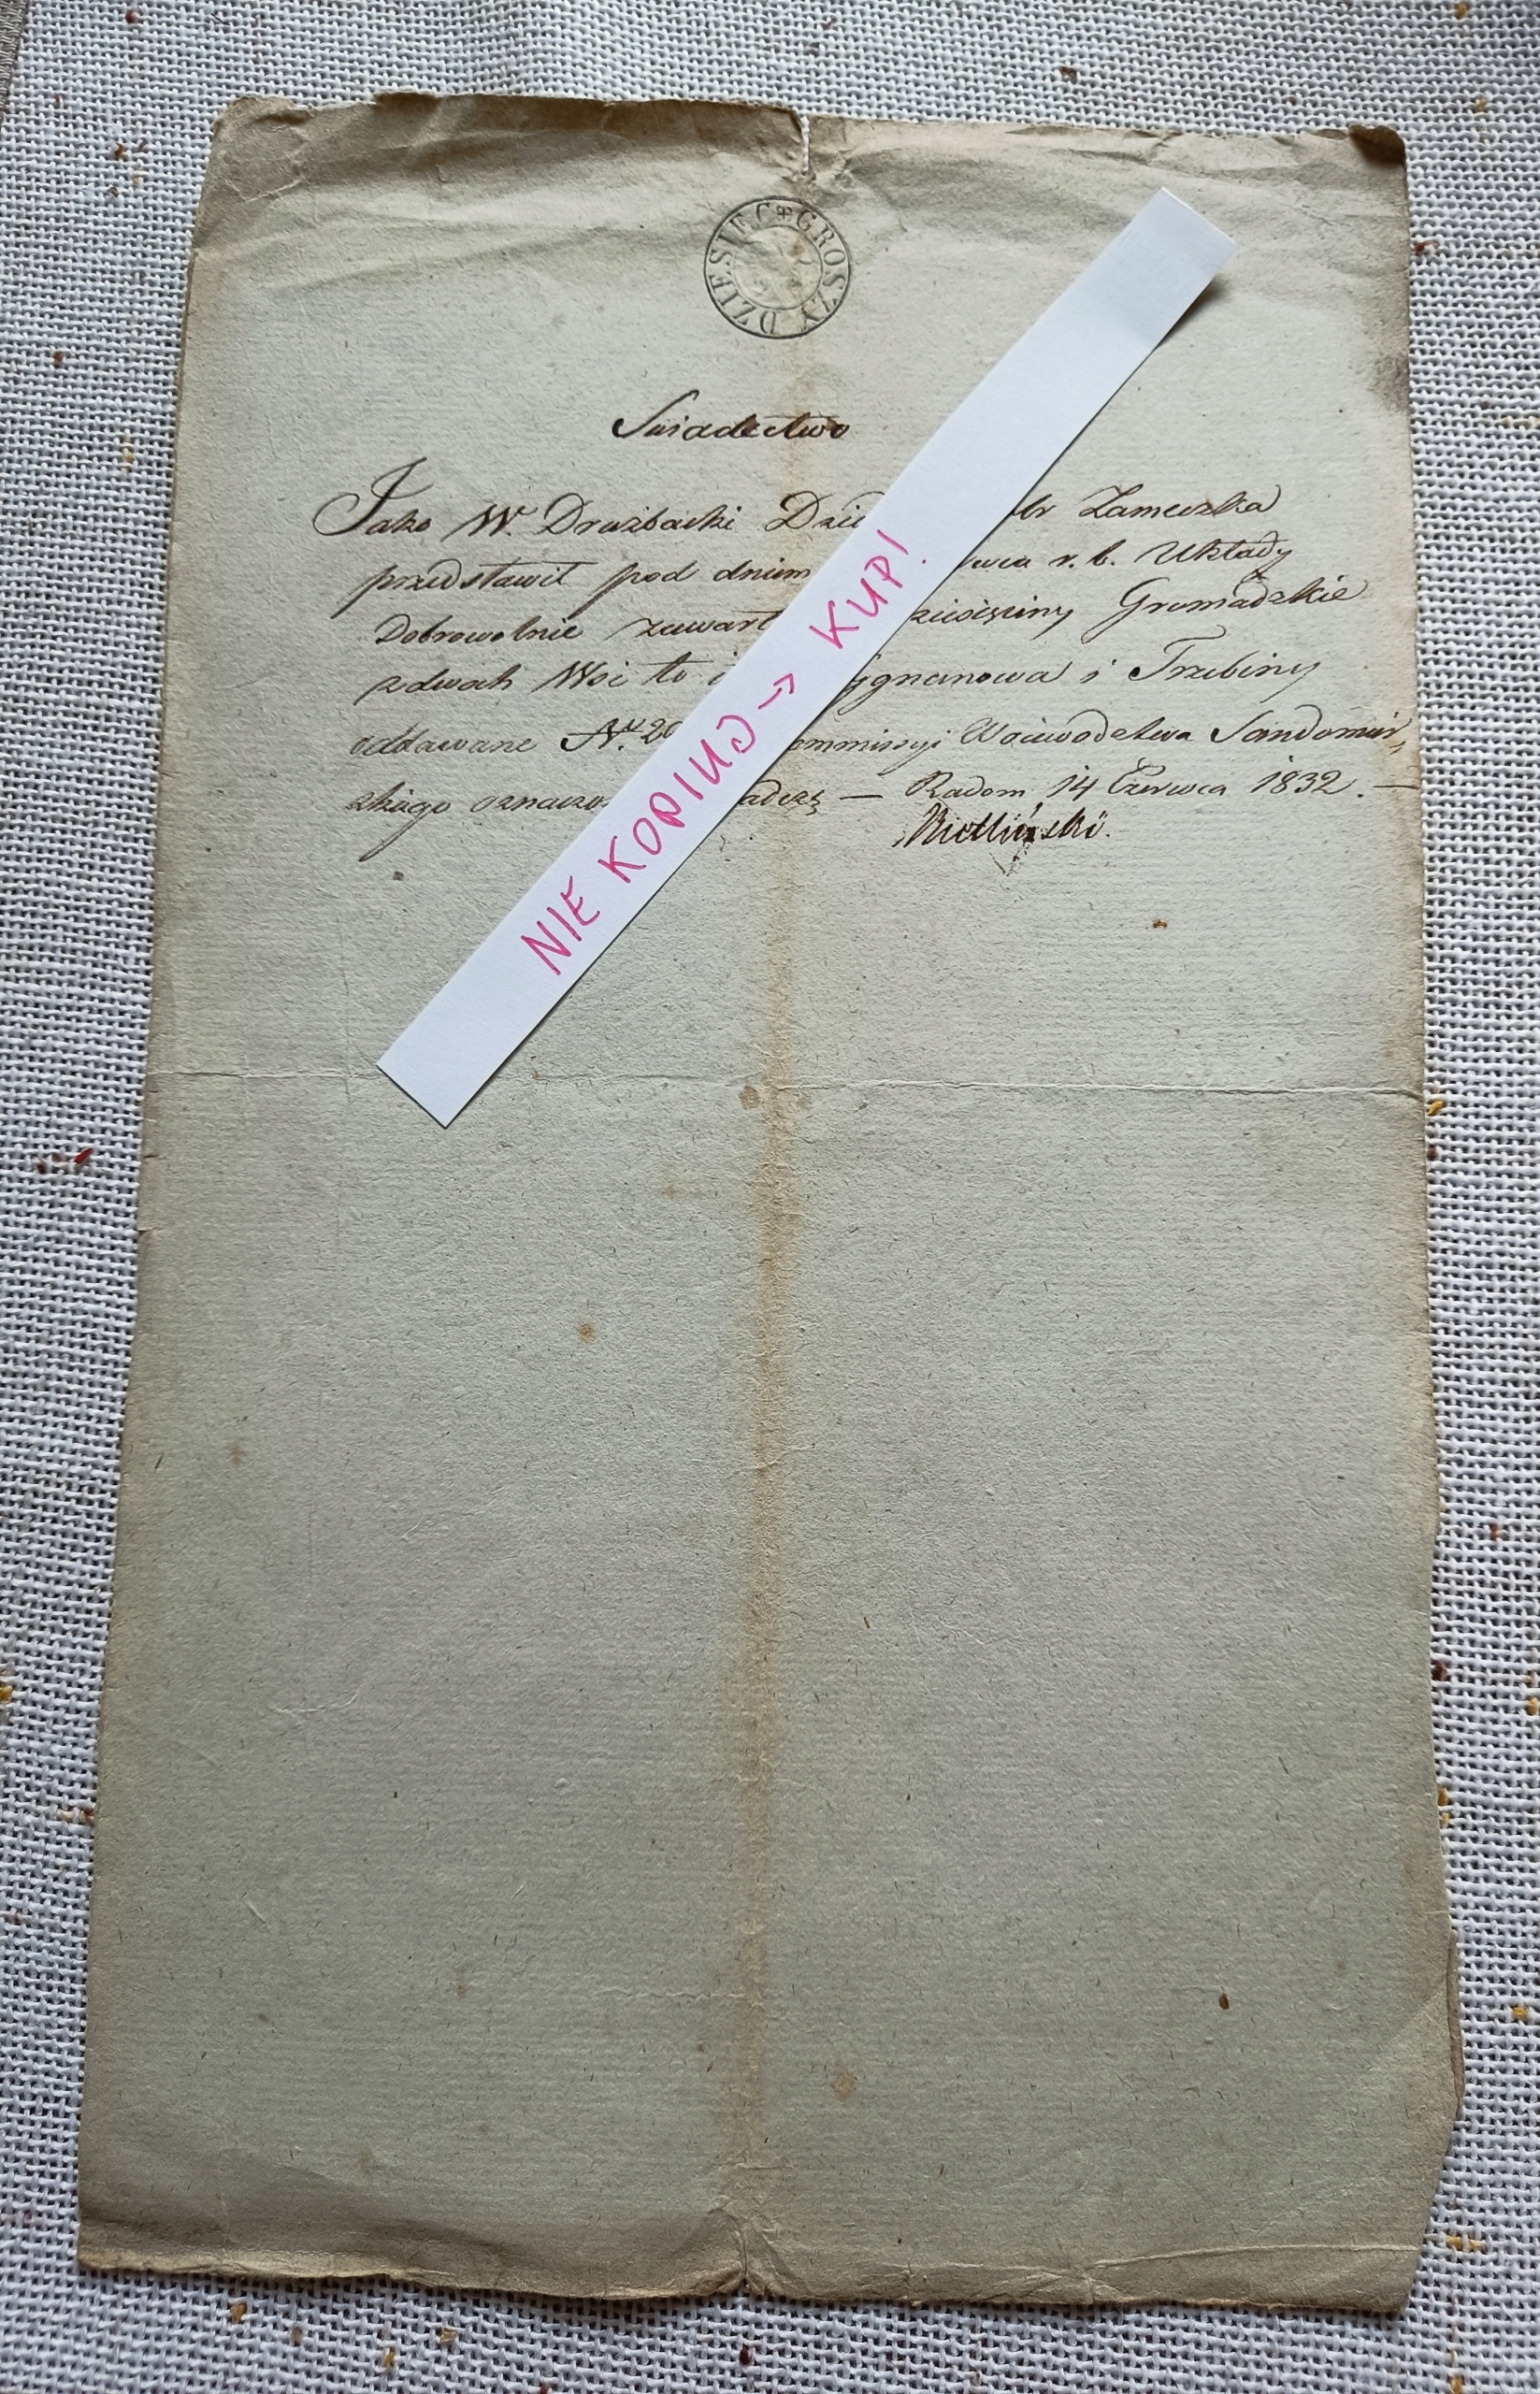 DZIESIEC GROSZY
Swiadectwo
Jako W. Drużbacki Dzie br Zameczka
przedstawił pod dniem wca r. b. Układy
Dobrowolnie zawart ziesięciny Gromadzkie
zdwóch Wsi to i ygnanowa i Trzebiny
oddawane Nr. 20 ommissyi Woiewodztwa Sandomir,
skiego oznaczo adczę — Radom 14 Czerwca 1832. —
NIE KOPIUJ → KUP!